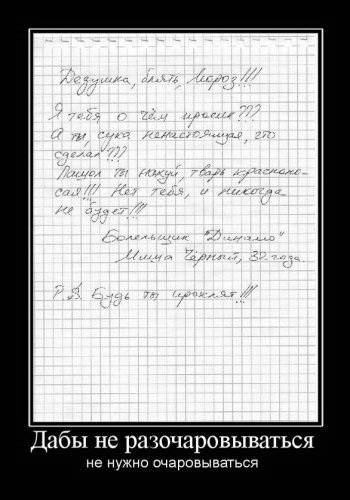 Дедушка, блять, Мороз!!!
Я тебя о чём просил???
А ты, сука ненастоящая, что
сделал???
Пашол ты нахуй, тварь красноно-
сая!!! Нет тебя, и никогда
не будет!!!
Болельщик "Динамо"
Миша Чёрный, 32 года.
P.S. Будь ты проклят!!!
Дабы не разочаровываться
не нужно очаровываться